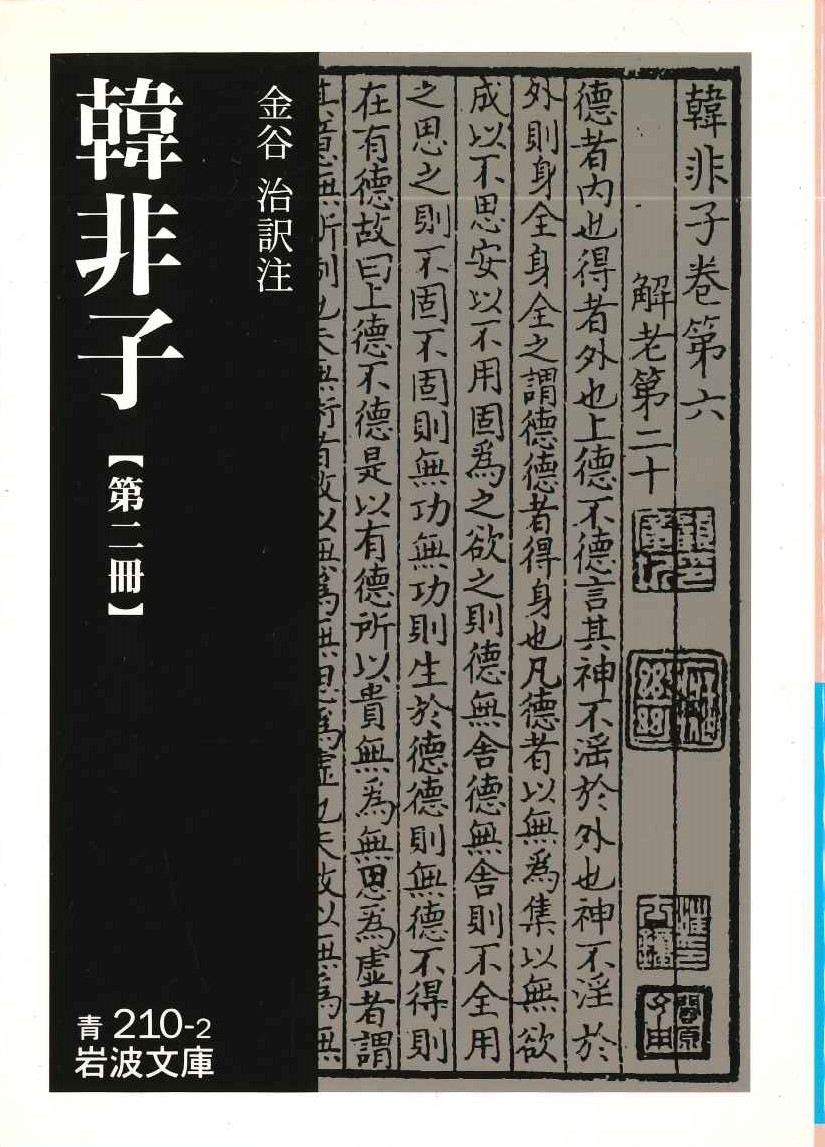 韓非子
【第二冊】
金谷 治訳注
青 210-2
岩波文庫
韓非子卷第六
解老第二十
德者内也得者外也上德不德言其神不淫於外也神不淫於
外則身全身全之謂德德者得身也凡德者以無爲集以無欲
成以不思安以不用固爲之欲之則德無舍德無舍則不全用
之思之則不固不固則無功無功則生於德德則無德不得則
在有德故曰上德不德是以有德所以貴無爲無思爲虛者謂